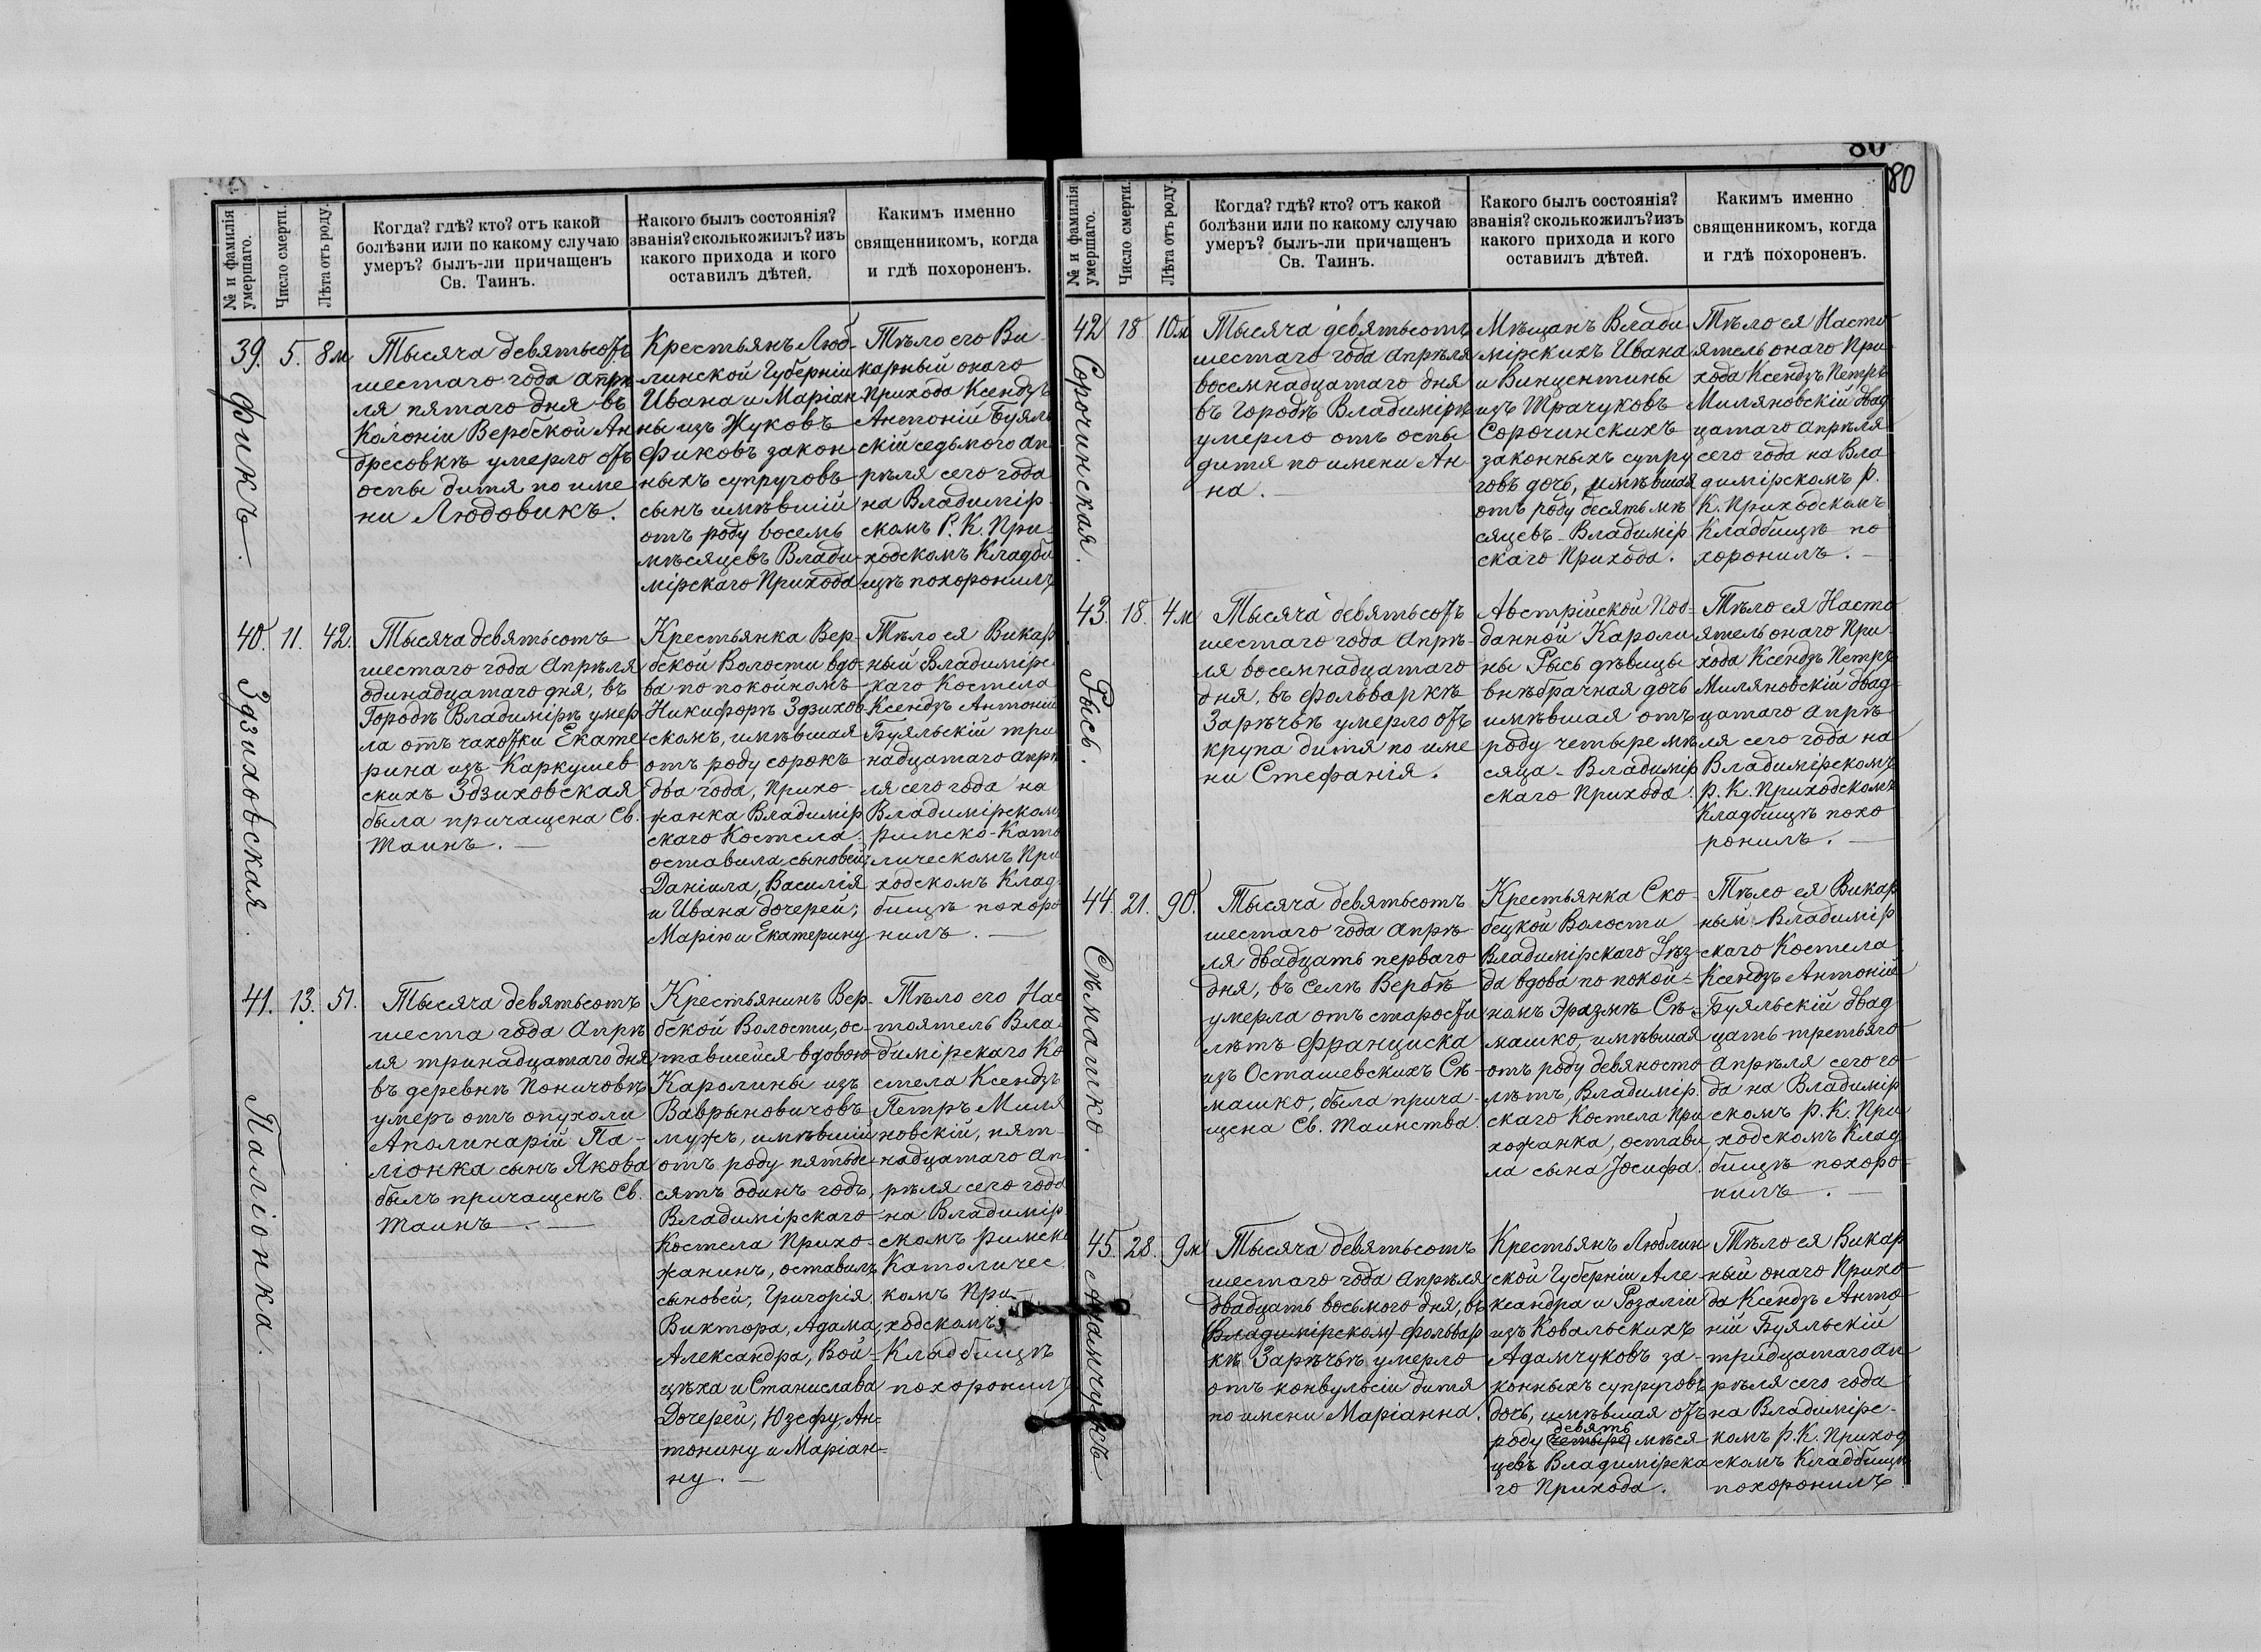 80
80
№ и фамилія
умершаго.
Число смерти.
Лѣта отъ роду.
Когда? гдѣ? кто? отъ какой
болѣзни или по какому случаю
умеръ? былъ-ли причащенъ
Св. Таинъ.
Какого былъ состоянія?
званія? сколько жилъ? изъ
какого прихода и кого
оставилъ дѣтей.
Каким​ъ именно
священникомъ, когда
и гдѣ похороненъ.
39. 5. 8 м
Фикъ.
Тысяча девятьсотъ
шестаго года Апрѣ
ля пятаго дня въ
Колоніи Вербской Ан
дресовкѣ умерло отъ
оспы дитя по име
ни Людовикъ.
Крестьянъ Люб-
линской Губерніи
Ивана и Маріан
ны изъ Жуковъ
Фиковъ закон-
ныхъ супруговъ
сынъ имѣвшій
отъ роду восемь
мѣсяцевъ Влади-
мірскаго Прихода
Тѣло его Ви-
карный онаго
Прихода Ксендзъ
Антоній Буяль
скій седьмого Ап
рѣля сего года
на Владимір
скомъ Р. К. При
ходскомъ Кладби
щѣ похоронилъ
40. 11. 42.
Здзиховская.
Тысяча девятьсотъ
шестаго года Апрѣля
одинадцатаго дня, въ
Городѣ Владимірѣ умер
ла отъ чахотки Екате
рина изъ Каркушев
скихъ Здзиховская
была причащена Св.
Таинъ. —
Крестьянка Вер-
бской Волости вдо-
ва по покойномъ
Никифорѣ Здзихов
скомъ, имѣвшая
отъ роду сорокъ
два года, Прихо-
жанка Владимір
скаго Костела.
оставила сыновей;
Даніила, Василія
и Ивана дочерей;
Марію и Екатерину
Тѣло ея Викар
ный Владимірс
каго Костела
Ксендзъ Антоній
Буяльскій три
надцатаго Апрѣ
ля сего года на
Владимірскомъ
Римско-Като
лическомъ При
ходскомъ Клад
бищѣ похоро
нилъ. —
41. 13. 51.
Паліонка.
Тысяча девятьсотъ
шеста года Апрѣ
ля тринадцатаго дня,
въ деревнѣ Поничовкѣ
умеръ отъ опухоли
Аполинарій Па-
ліонка сынъ Якова
былъ причащенъ Св.
Таинъ. —
Крестьянинъ Вер-
бской Волости, ос-
тавшейся вдовою
Каролины изъ
Ваврыновичовъ
мужъ, имѣвшій
отъ роду пятьде-
сятъ одинъ годъ,
Владимірскаго
Костела Прихо-
жанинъ, оставилъ
сыновей; Григорія,
Виктора, Адама,
Александра, Вой-
цѣха и Станислава
Дочерей; Юзефу, Ан-
тонину и Маріан-
ну. —
Тѣло его Нас
тоятель Вла-
димірскаго Ко
стела Ксендзъ
Петръ Миля
новскій, пят-
надцатаго Ап-
рѣля сего года
на Владимір
скомъ Римско
Католичес
комъ При-
ходскомъ
Кладбищѣ
похоронилъ
№ и фамилія
умершаго.
Число смерти.
Лѣта отъ роду.
Когда? гдѣ? кто? отъ какой
болѣзни или по какому случаю
умеръ? былъ-ли причащенъ
Св. Таинъ.
Какого былъ состоянія?
званія? сколько жилъ? изъ
какого прихода и кого
оставилъ дѣтей.
Какимъ именно
священникомъ, когда
и гдѣ похороненъ.
42 18 10 м
Сорочинская.
Тысяча девятьсотъ
шестаго года Апрѣля
восемнадцатаго дня
въ Городѣ Владимірѣ
умерло отъ оспы
дитя по имени Ан-
на. —
Мѣщанъ Влади
мірскихъ Ивана
и Винцентины
изъ Трачуковъ
Сорочинскихъ
законныхъ супру
говъ дочь, имѣвшая
отъ роду десять мѣ
сяцевъ - Владимір
скаго Прихода.
Тѣло ея Насто
ятель онаго При-
хода Ксендзъ Петръ
Миляновскій двад
цатаго Апрѣля
сего года на Вла
димірскомъ Р.
К. Приходскомъ
Кладбищѣ по
хоронилъ. —
43. 18. 4 м
Рысь.
Тысяча девятьсотъ
шестаго года Апрѣ-
ля восемнадцатаго
дня, въ фольваркѣ
Зарѣчьѣ умерло отъ
крупа дитя по име
ни Стефанія.
Австрійской Под-
данной Кароли
ны Рысь дѣвицы
внѣбрачная дочь
имѣвшая отъ
роду четыре мѣ
сяца - Владимір
скаго Прихода.
Тѣло ея Насто
ятель онаго При-
хода Ксендзъ Петръ
Миляновскій двад-
цатаго Апрѣ-
ля сего года на
Владимірскомъ
Р. К. Приходскомъ
Кладбищѣ похо
ронилъ. —
44. 21. 90.
Сѣмашко.
Тысяча девятьсотъ
шестаго года Апрѣ-
ля двадцать перваго
дня, въ селѣ Вербѣ
умерла отъ старости
лѣтъ Франциска
изъ Осташевскихъ Сѣ-
машко, была прича-
щена Св. Таинства.
Крестьянка Ско-
бецкой Волости
Владимірскаго Уѣз-
да вдова по покой-
номъ Эразмѣ Сѣ-
машко, имѣвшая
отъ роду девяносто
лѣтъ, Владимір.
скаго Костела При
хожанка, остави
ла сына Іосифа.
Тѣло ея Викар
ный Владимір
скаго Костела
Ксендзъ Антоній
Буяльскій двад
цать третьяго
Апрѣля сего го
да на Владимір
скомъ Р. К. При
ходскомъ Клад
бищѣ похоро-
нилъ. —
45. 28. 9 м
Адамчукъ.
Тысяча девятьсотъ
шестаго года Апрѣля
двадцать восьмого дня, въ
(Владимірском) фольвар
кѣ Зарѣчьѣ умерло
отъ конвульсіи дитя
по имени Маріанна.
Крестьянъ Люблин
ской Губерніи Але-
ксандра и Розаліи
изъ Ковальскихъ
Адамчуковъ за-
конныхъ супруговъ
дочь, имѣвшая отъ
девять
роду (четыре) мѣся-
цевъ Владимірска
го Прихода.
Тѣло ея Викар
ный онаго Прихо-
да Ксендзъ Анто-
ній Буяльскій
тридцатаго Ап
рѣля сего года
на Владимірс-
комъ Р. К. Приход
скомъ Кладбищѣ
похоронилъ